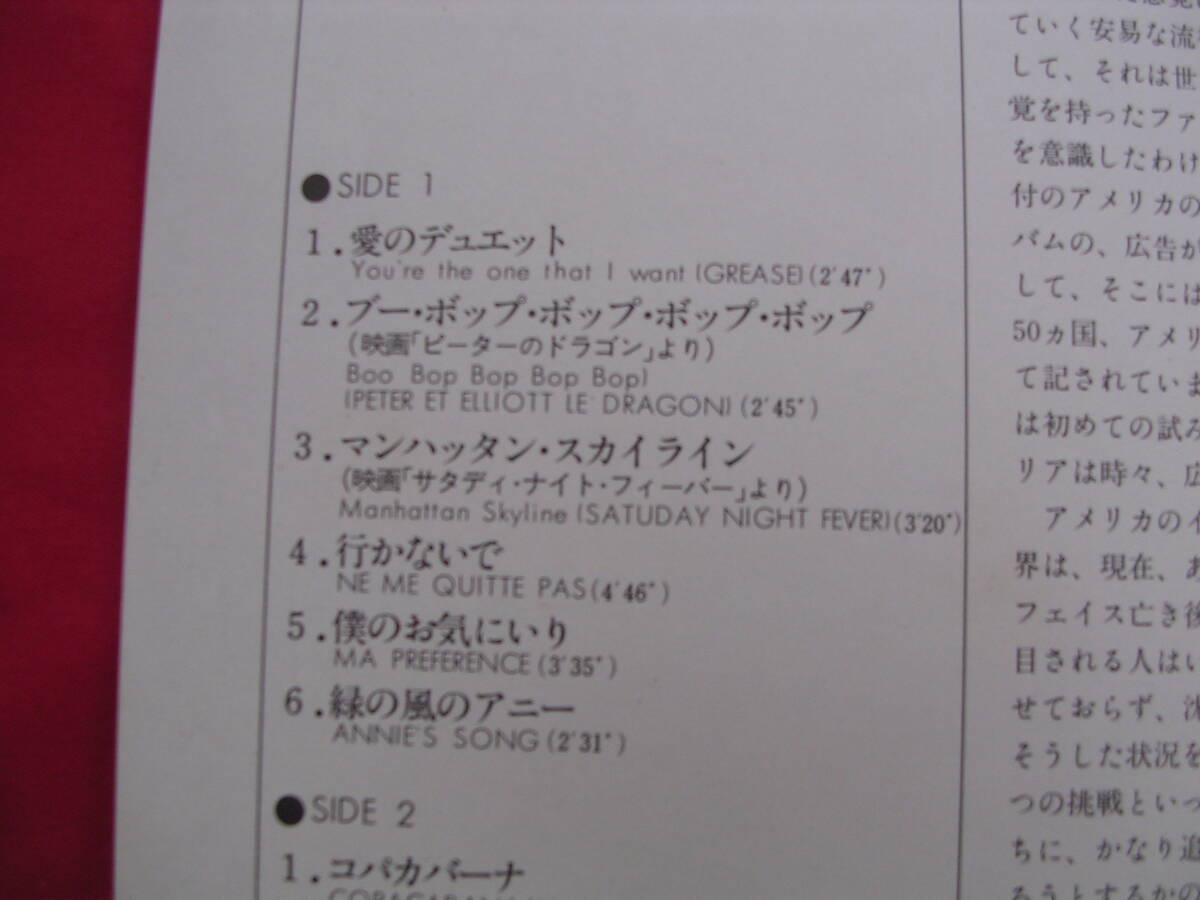 ●SIDE 1
1.愛のデュエット
You're the one that I want (GREASE) (2'47")
2.ブー・ボップ・ボップ・ボップ・ボップ
(映画「ピーターのドラゴン」より)
Boo Bop Bop Bop Bop)
(PETER ET ELLIOTT LE DRAGON) (2'45")
3.マンハッタン・スカイライン
(映画「サタディ・ナイト・フィーバー」より)
Manhattan Skyline (SATUDAY NIGHT FEVER) (3'20")
4.行かないで
NE ME QUITTE PAS (4'46")
5.僕のお気にいり
MA PREFERENCE (3'35")
6.緑の風のアニー
ANNIE'S SONG (2'31")
●SIDE 2
1.コパカバーナ
ていく安易な流
して、それは世
覚を持ったファ
を意識したわけ
付のアメリカの
バムの、広告が
して、そこには
50ヵ国、アメリ
て記されていま
は初めての試み
リアは時々、広
アメリカのイ
界は、現在、あ
フェイス亡き後
目される人はい
せておらず、沈
そうした状況を
つの挑戦といっ
ちに、かなり追
ろうとするかの